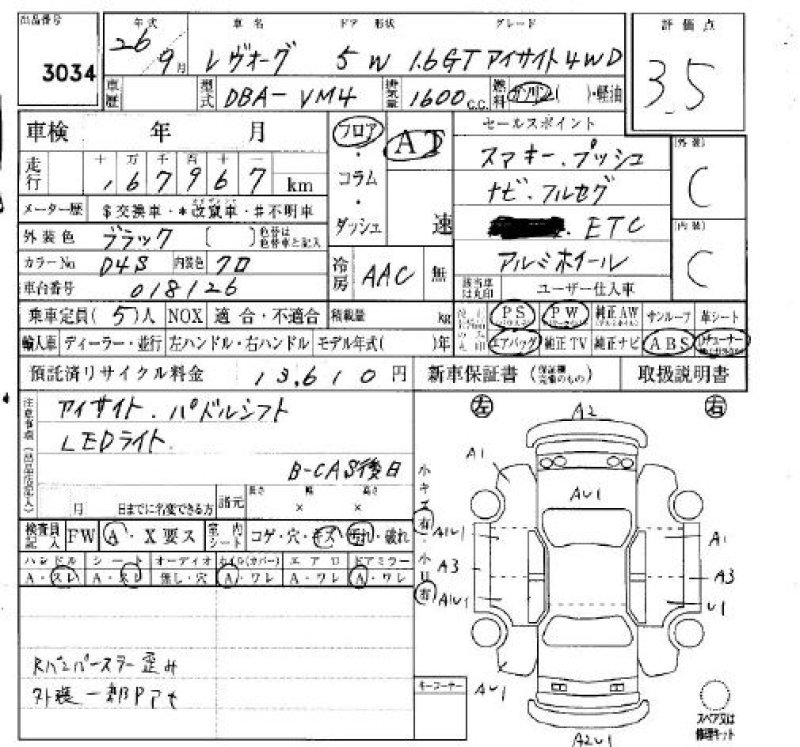 出品番号 3034
年式 26/9月 車名 レヴォーグ ドア 形状 5W グレード 1.6GT アイサイト4WD
評価点 3.5
車歴 型式 DBA-VM4 排気量 1600 C.C. 燃料 ガソリン( )・軽油
車検 年 月
フロア・コラム・ダッシュ
AT 速
セールスポイント
スマキー.プッシュ
ナビ.フルセグ
. ETC
アルミホイール
(外装) C
(内装) C
走行 十万千百十一
,67967 km
メーター歴 $交換車・*改竄車・#不明車
外装色 ブラック ( ) 色替は色替車と記入
カラーNo D4S 内装色 クロ
冷房 AAC 無
該当車は丸印 ユーザー仕入車
車台番号 018126
乗車定員(5)人 NOX 適合・不適合 積載量 kg
PS PW 純正AW サンルーフ 革シート
輸入車 ディーラー・並行 左ハンドル・右ハンドル モデル年式( )年
エアバッグ 純正TV 純正ナビ ABS
預託済リサイクル料金 13,610円 新車保証書 (保証継完備のもの) 取扱説明書
アイサイト.パドルシフト
LEDライト.
B-CAS後日
月 日までに名変できる方 諸元 長さ × 幅 × 高さ
検査員記入 FW A・X要ス 室内シート コゲ・穴・キズ・汚れ・破れ
ハンドル シート オーディオ ホイル(カバー) エアロ ドアミラー
A・スレ A・スレ 無し・穴 A・ワレ A・ワレ A・ワレ
Rバンパーステー歪み
外装一部Pアセ
小キズ 有
小凹 有
キーコーナー
左 A2 右
A1
AU1
A1U1 A1
A3 A3
A1U1 U1
AU1
A2U1
スペア又は修理キット